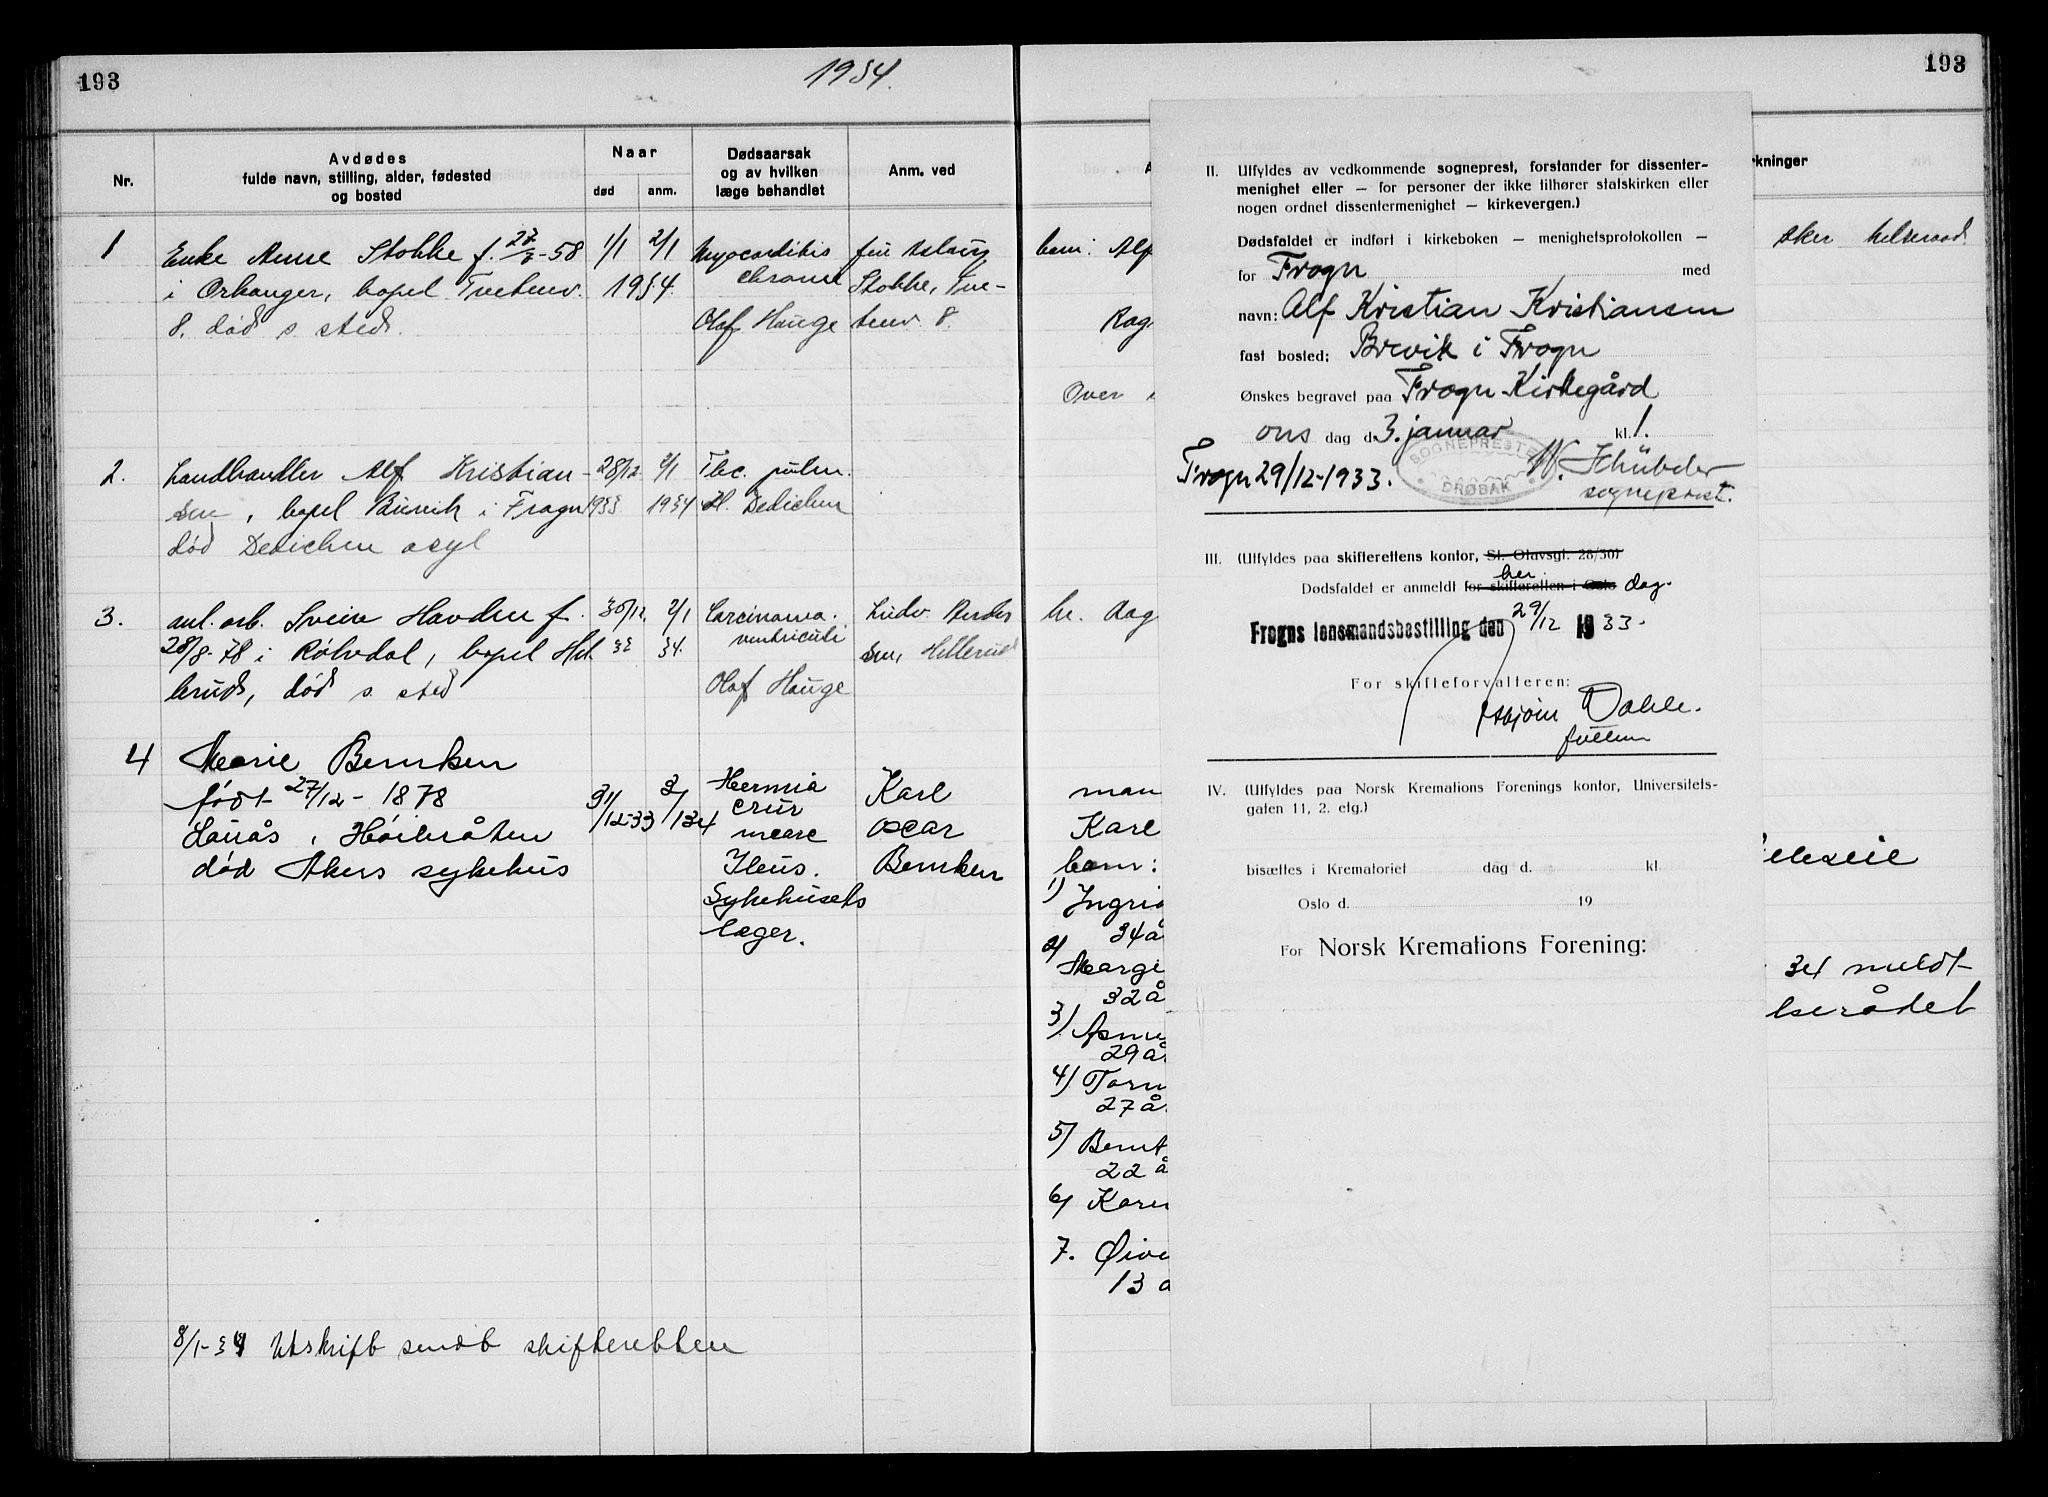 193
1934.
Nr.
Avdødes
fulde navn, stilling, alder, fødested
og bosted
Naar
død
anm.
Dødsaarsak
og av hvilken
læge behandlet
Anm. ved
1
Enke Anne Stokke f. 58
i Orkanger, bopel Tvetenv.
8. død s. sted.
1/1
2/1
1934.
Myocarditis
chronic
Olaf Hauge
fru Aslaug
Stokke, Tve-
tenv 8.
2.
Landhandler Alf Kristian-
sen, bopel i Frogn
død Dedichen asyl
28/12
1933
2/1
1934
Tbc. pulm.
H. Dedichen
3.
anl. arb. Svein Havdin f.
28/8-78 i Røldal, bopel Hel
lerud, død s. sted
30/12
33
2/1
34.
Carcinoma
ventriculi
Olaf Hauge
Ludv.
sen, Hellerud
4
Marie Bernken
født 27/12 - 1878
Høibråten
død Akers sykehus
31/12-33
3/1 34
Hernia
crur
incarc
Ileus.
Sykehusets
læger.
Karl
Oscar
Bernken
8/1-34 Utskrift sendt skifteretten
193
rkninger
barn: Alf
Rag
Over
br. Aag
man
Karl
barn:
1) Ingri
34 å
2) Margi
32 å
3)
29 å.
4) Torn
27 å.
5) Bernt
22 å
6) Kar
7. Øiv
13 å
Aker helseraad
34 meldt
lserådet
II. Utfyldes av vedkommende sogneprest, forstander for dissenter-
menighet eller — for personer der ikke tilhører statskirken eller
nogen ordnet dissentermenighet — kirkevergen.)
Dødsfaldet er indført i kirkeboken — menighetsprotokollen —
for Frogn med
navn: Alf Kristian Kristiansen
fast bosted: Brevik i Frogn
Ønskes begravet paa Frogn Kirkegård
ons dag d. 3. januar kl. 1.
SOGNEPREST
DRØBAK
Frogn 29/12-1933.
W. Schübeler
sogneprest.
III. (Utfyldes paa skifterettens kontor, St. Olavsgt. 28/30)
her
Dødsfaldet er anmeldt for skifteretten i Oslo dag.
Frogns lensmandsbestilling den 29/12 1933.
For skifteforvalteren:
Asbjørn Dahle.
fullm
IV. (Utfyldes paa Norsk Kremations Forenings kontor, Universitets-
gaten 11, 2. etg.)
bisættes i Krematoriet dag d. kl.
Oslo d. 19
For Norsk Kremations Forening: